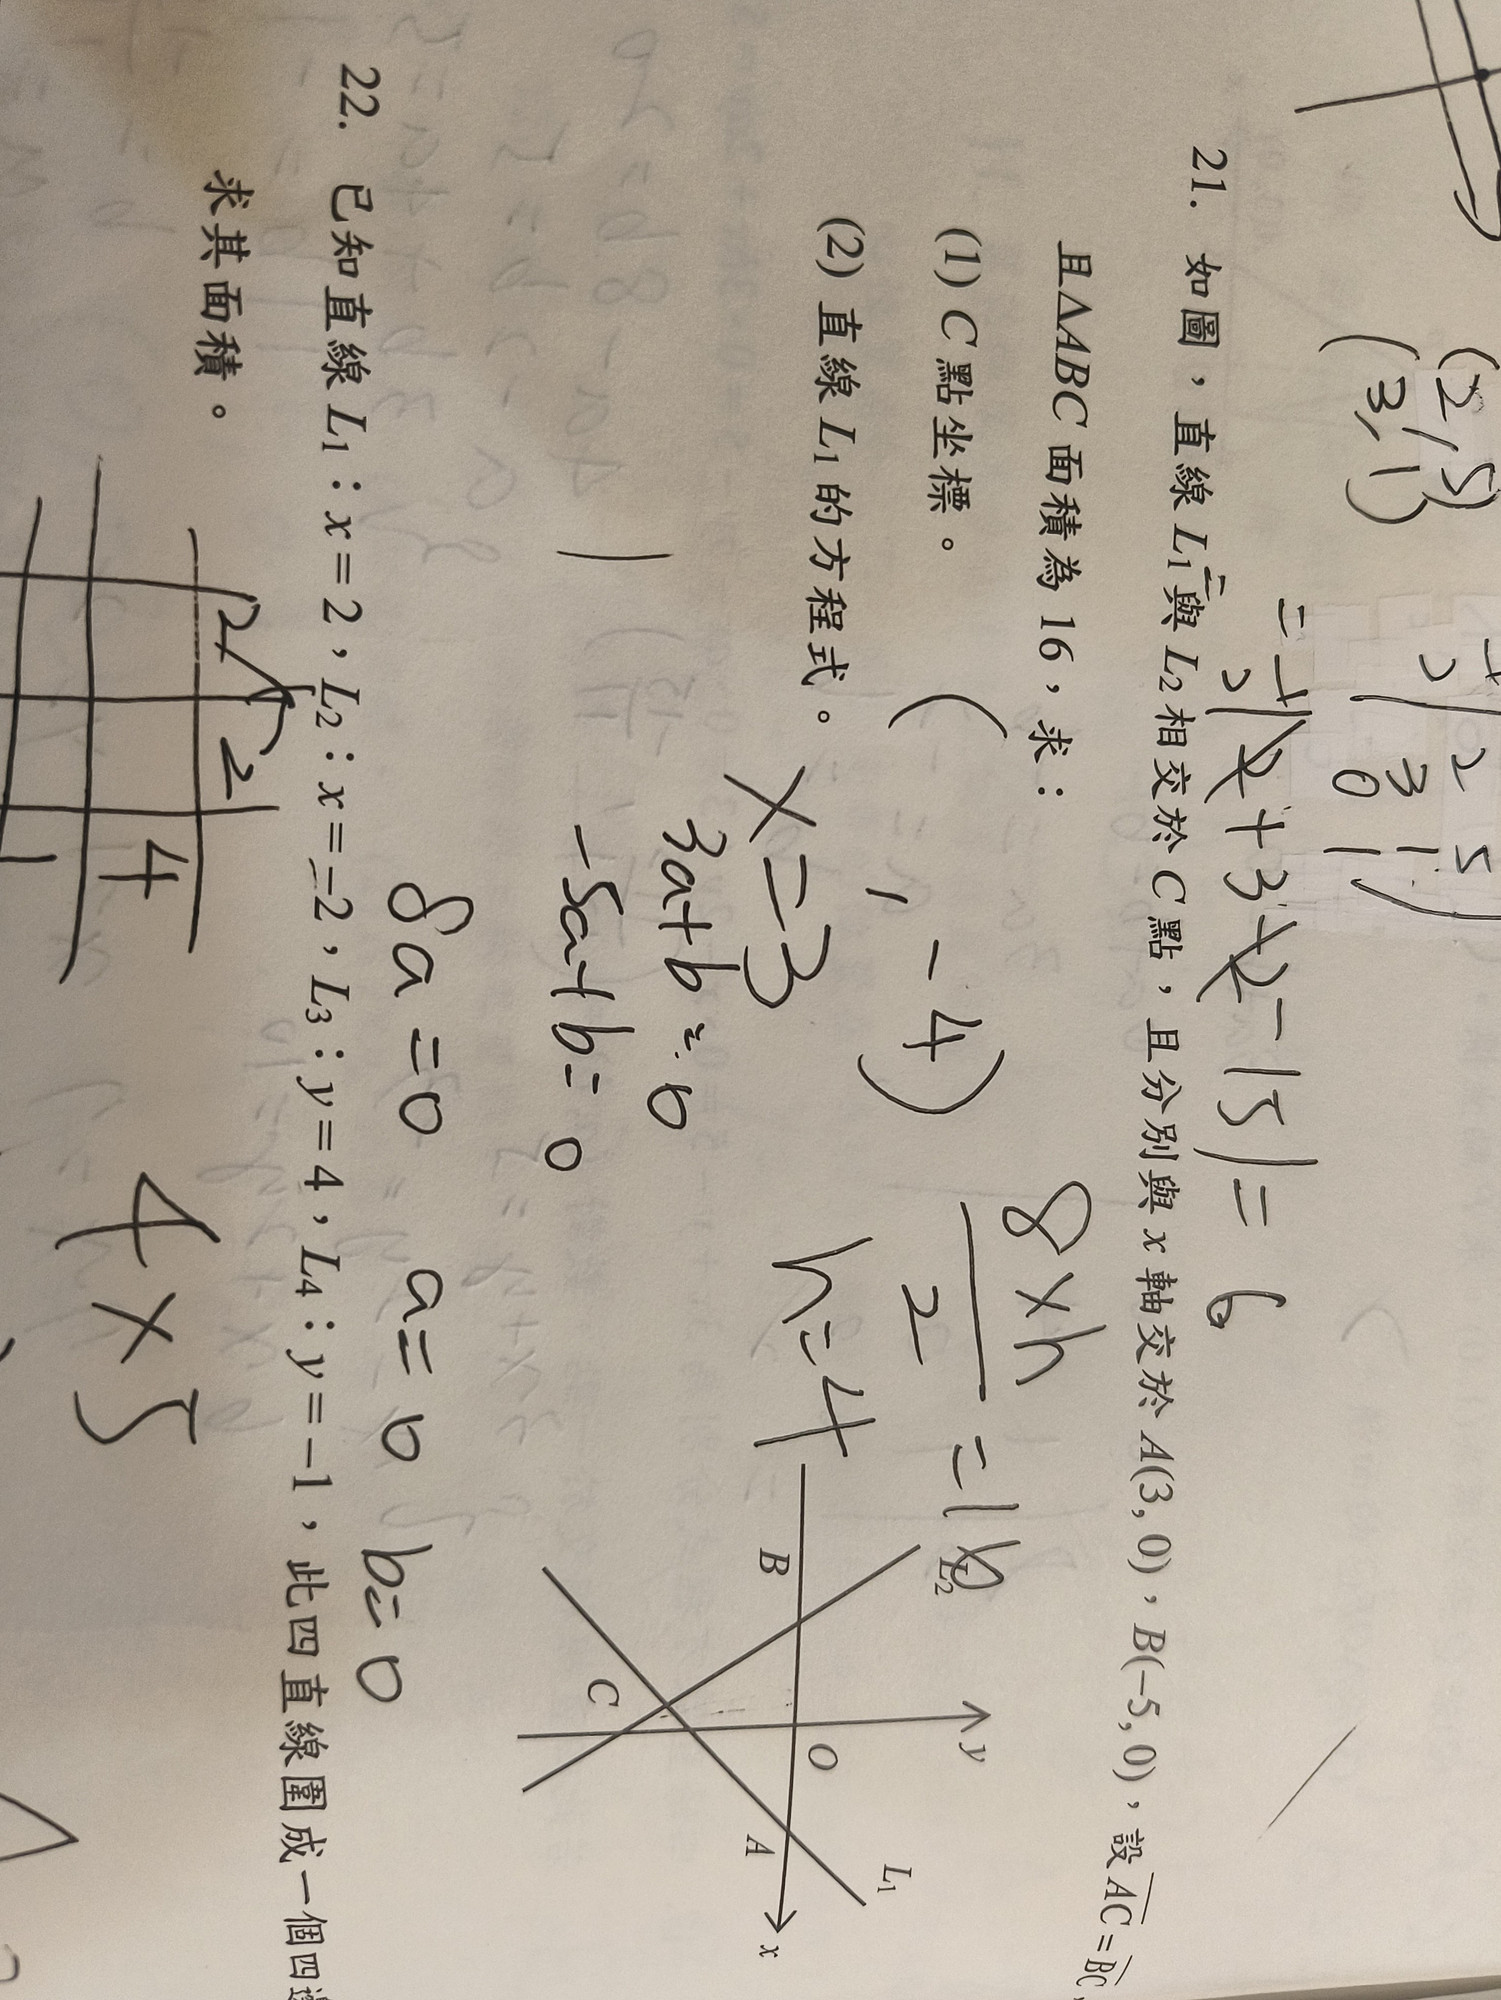 (2,5)
(3,1)
2 5
3 1
0
+3 -15|= 6
21. 如圖，直線 L₁與 L₂相交於 C 點，且分別與 x 軸交於 A(3, 0)，B(−5, 0)，設 AC = BC，
且△ABC 面積為 16，求：
(1) C 點坐標。
(2) 直線 L₁的方程式。
( , -4)
8×h
2
=16
h=4
x=3
3a+b=0
-5a+b=0
8a=0 a=0 b=0
y
x
O
A
B
C
L₁
L₂
22. 已知直線 L₁：x = 2，L₂：x = −2，L₃：y = 4，L₄：y = −1，此四直線圍成一個四邊
求其面積。
2
2
4
1
4×5